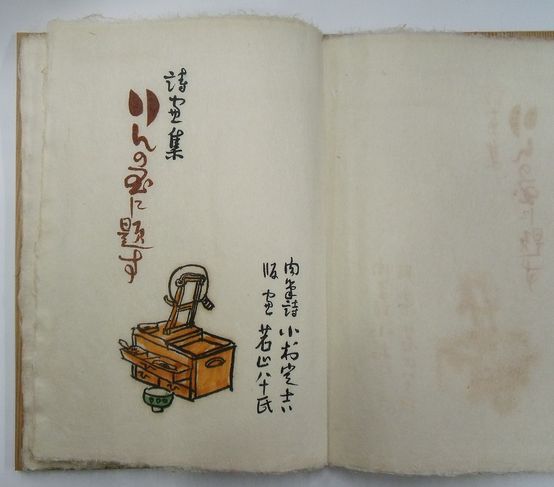 詩画集
りんの玉に題す
肉筆詩 小村定吉
版画 若山八十氏